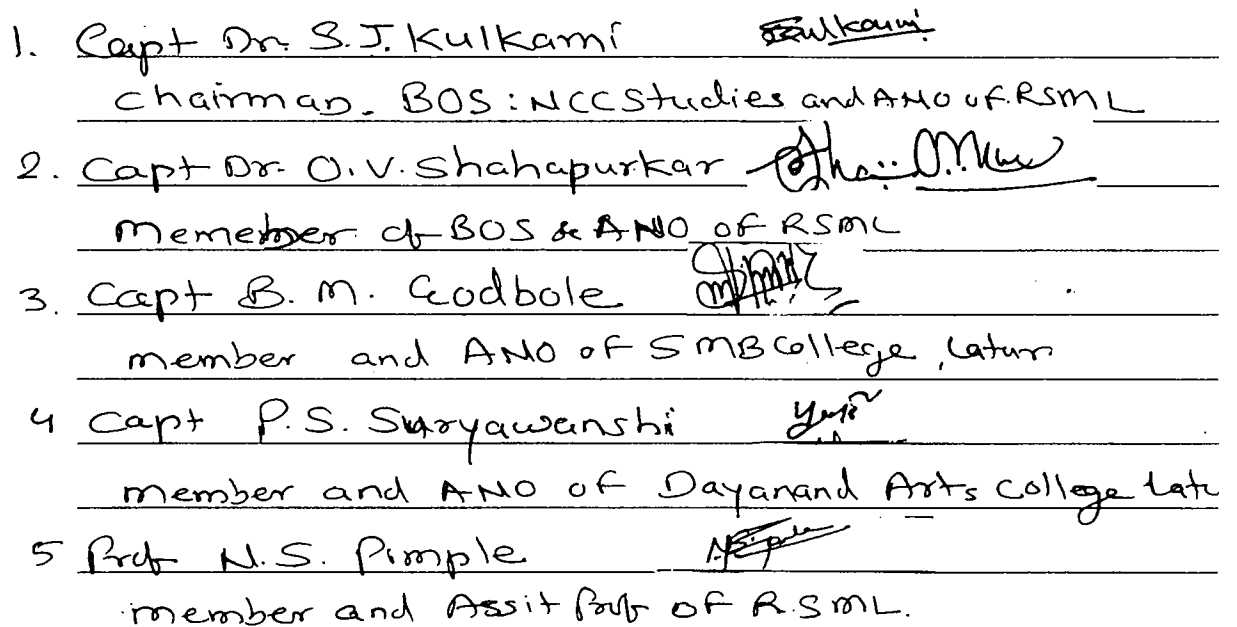 1. Capt Dr. S.J. Kulkarni
Chairman. BOS: NCC Studies and ANO of RSML
2. Capt Dr. O.V. Shahapurkar
Memember of BOS & ANO of RSML
3. Capt B. M. Godbole
member and ANO of SMB College, Latur
4 Capt P.S. Suryawanshi
member and ANO of Dayanand Arts College Latu
5 Prof N.S. Pimple
member and Assit Prof of R.S.M.L.